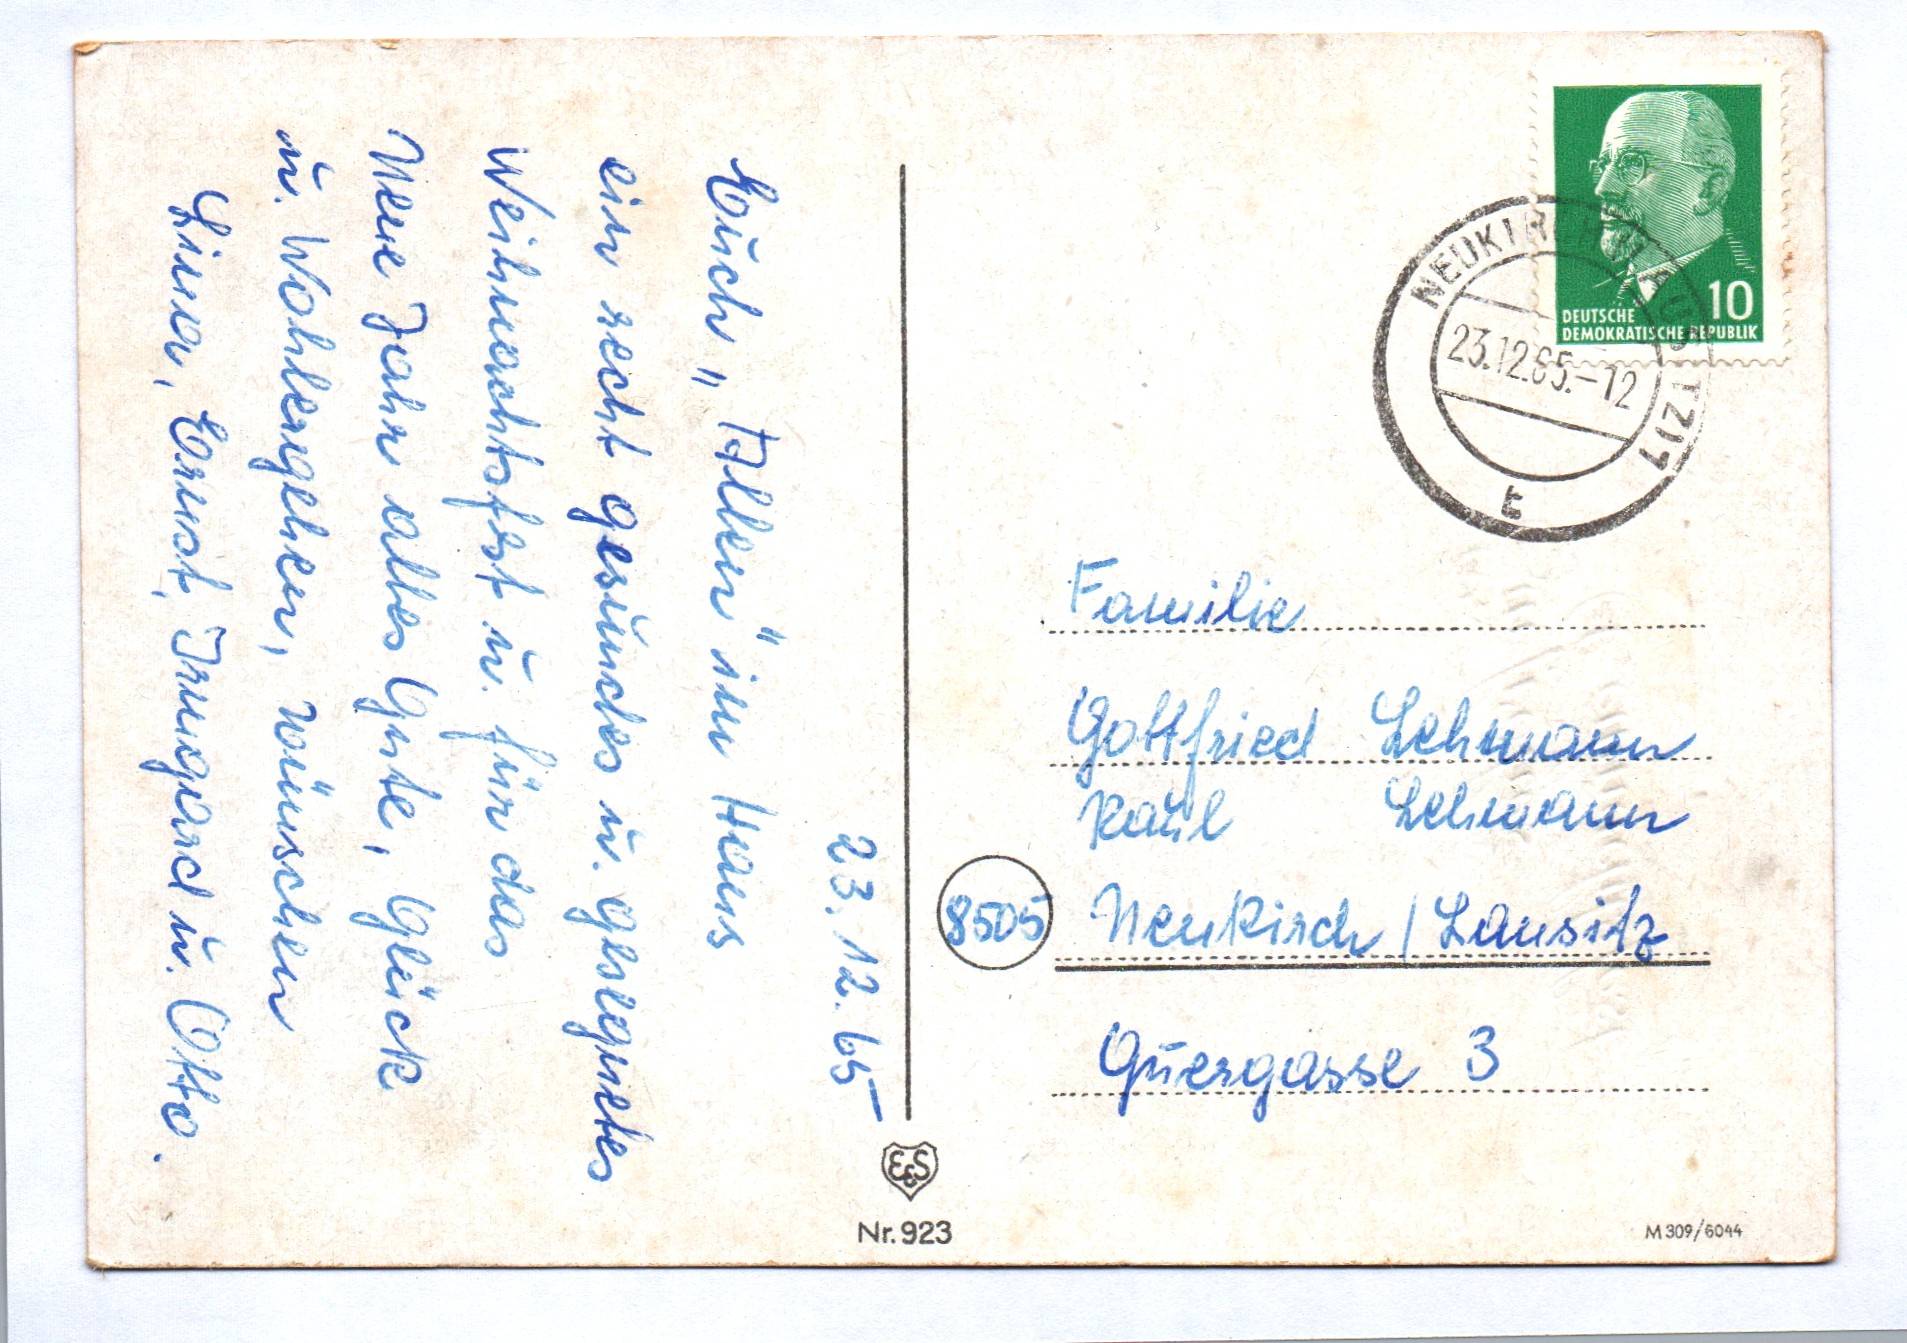 23.12.65
Euch "Allen" im Haus
ein recht gesundes u. gesegnetes
Weihnachtsfest u. für das
Neue Jahr alles Gute, Glück
u. Wohlergehen, wünschen
Lina, Ernst, Irmgard u. Otto.
DEUTSCHE
DEMOKRATISCHE REPUBLIK
10
NEUKIRCH (LAUSITZ) 1
23.12.65.-12
t
Familie
Gottfried Lehmann
Karl Lehmann
8505 Neukirch / Lausitz
Quergasse 3
EGS
Nr. 923
M 309/6044